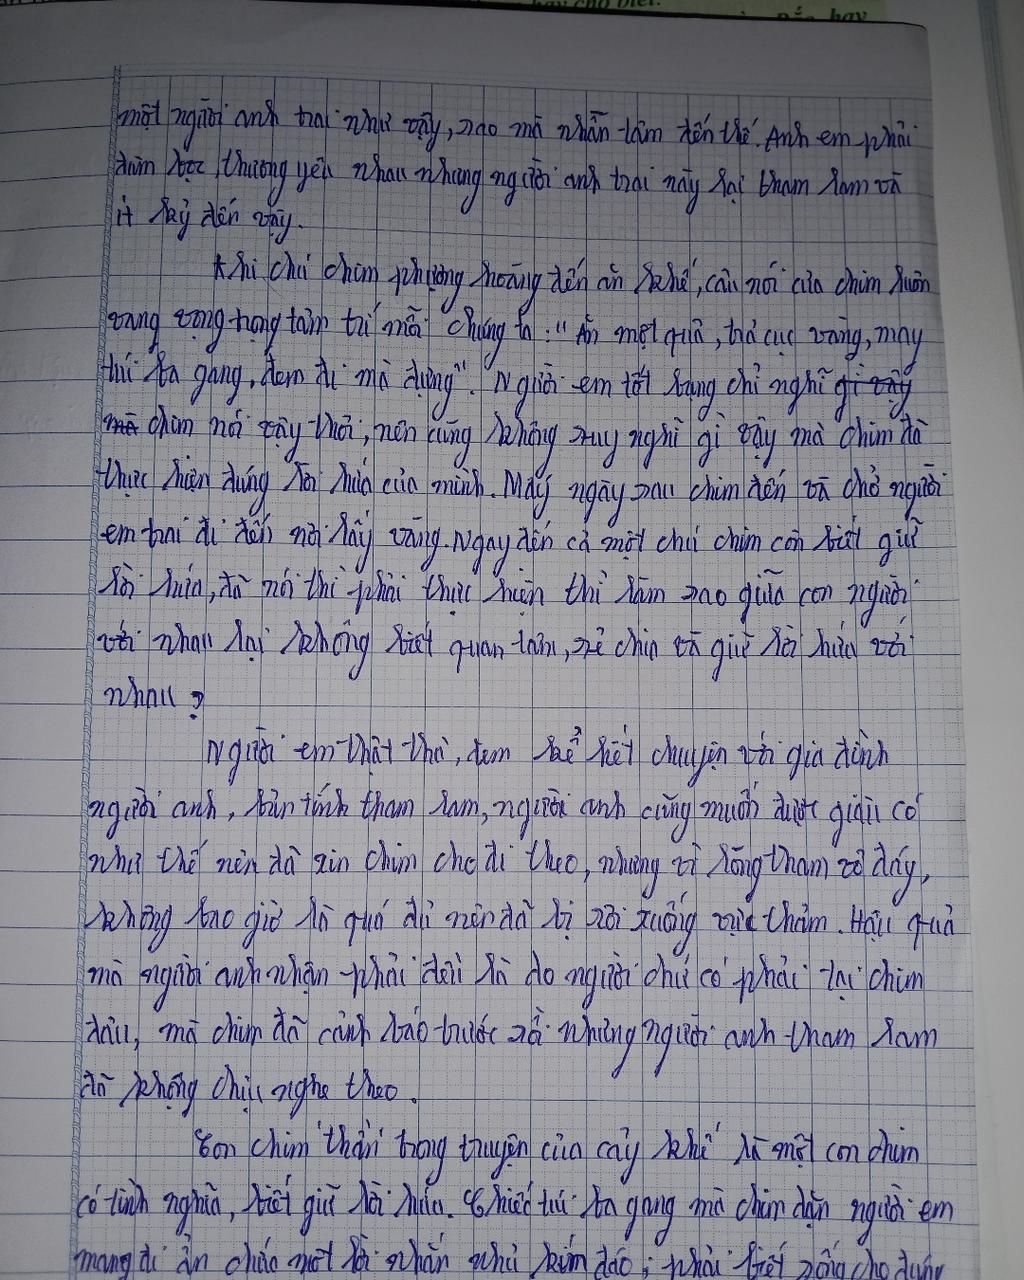 hay cho biết.
một người anh trai như vậy, sao mà nhẫn tâm đến thế. Anh em phải
đùm bọc, thương yêu nhau nhưng người anh trai này lại tham lam và
ít kỷ đến vậy.
Khi chú chim phượng hoàng đến ăn khế, câu nói của chim luôn
vang vọng trong tâm trí mỗi chúng ta: "Ăn một quả, trả cục vàng, may
túi ba gang, đem đi mà đựng". Người em tốt bụng chỉ nghĩ gì vậy
mà chim nói vậy thôi, nên cũng không suy nghĩ gì vậy mà chim đã
thực hiện đúng lời hứa của mình. Mấy ngày sau chim đến và chở người
em trai đi đến nơi lấy vàng. Ngay đến cả một chú chim còn biết giữ
lời hứa, đã nói thì phải thực hiện thì làm sao giữa con người
với nhau lại không biết quan tâm, sẻ chia và giữ lời hứa với
nhau?
Người em thật thà, đem kể hết chuyện với gia đình
người anh, bản tính tham lam, người anh cũng muốn được giàu có
như thế nên đã xin chim cho đi theo, nhưng vì lòng tham vô đáy,
không bao giờ là quá đủ nên đã bị rơi xuống vực thẳm. Hậu quả
mà người anh nhận phải đều là do người chứ có phải tại chim
đâu, mà chim đã cảnh báo trước rồi nhưng người anh tham lam
đã không chịu nghe theo.
Con chim thần trong truyện của cây khế là một con chim
có tình nghĩa, biết giữ lời hứa. Chiếc túi ba gang mà chim dặn người em
mang đi ẩn chứa một lời nhắn nhủ kín đáo; phải biết sống cho đúng